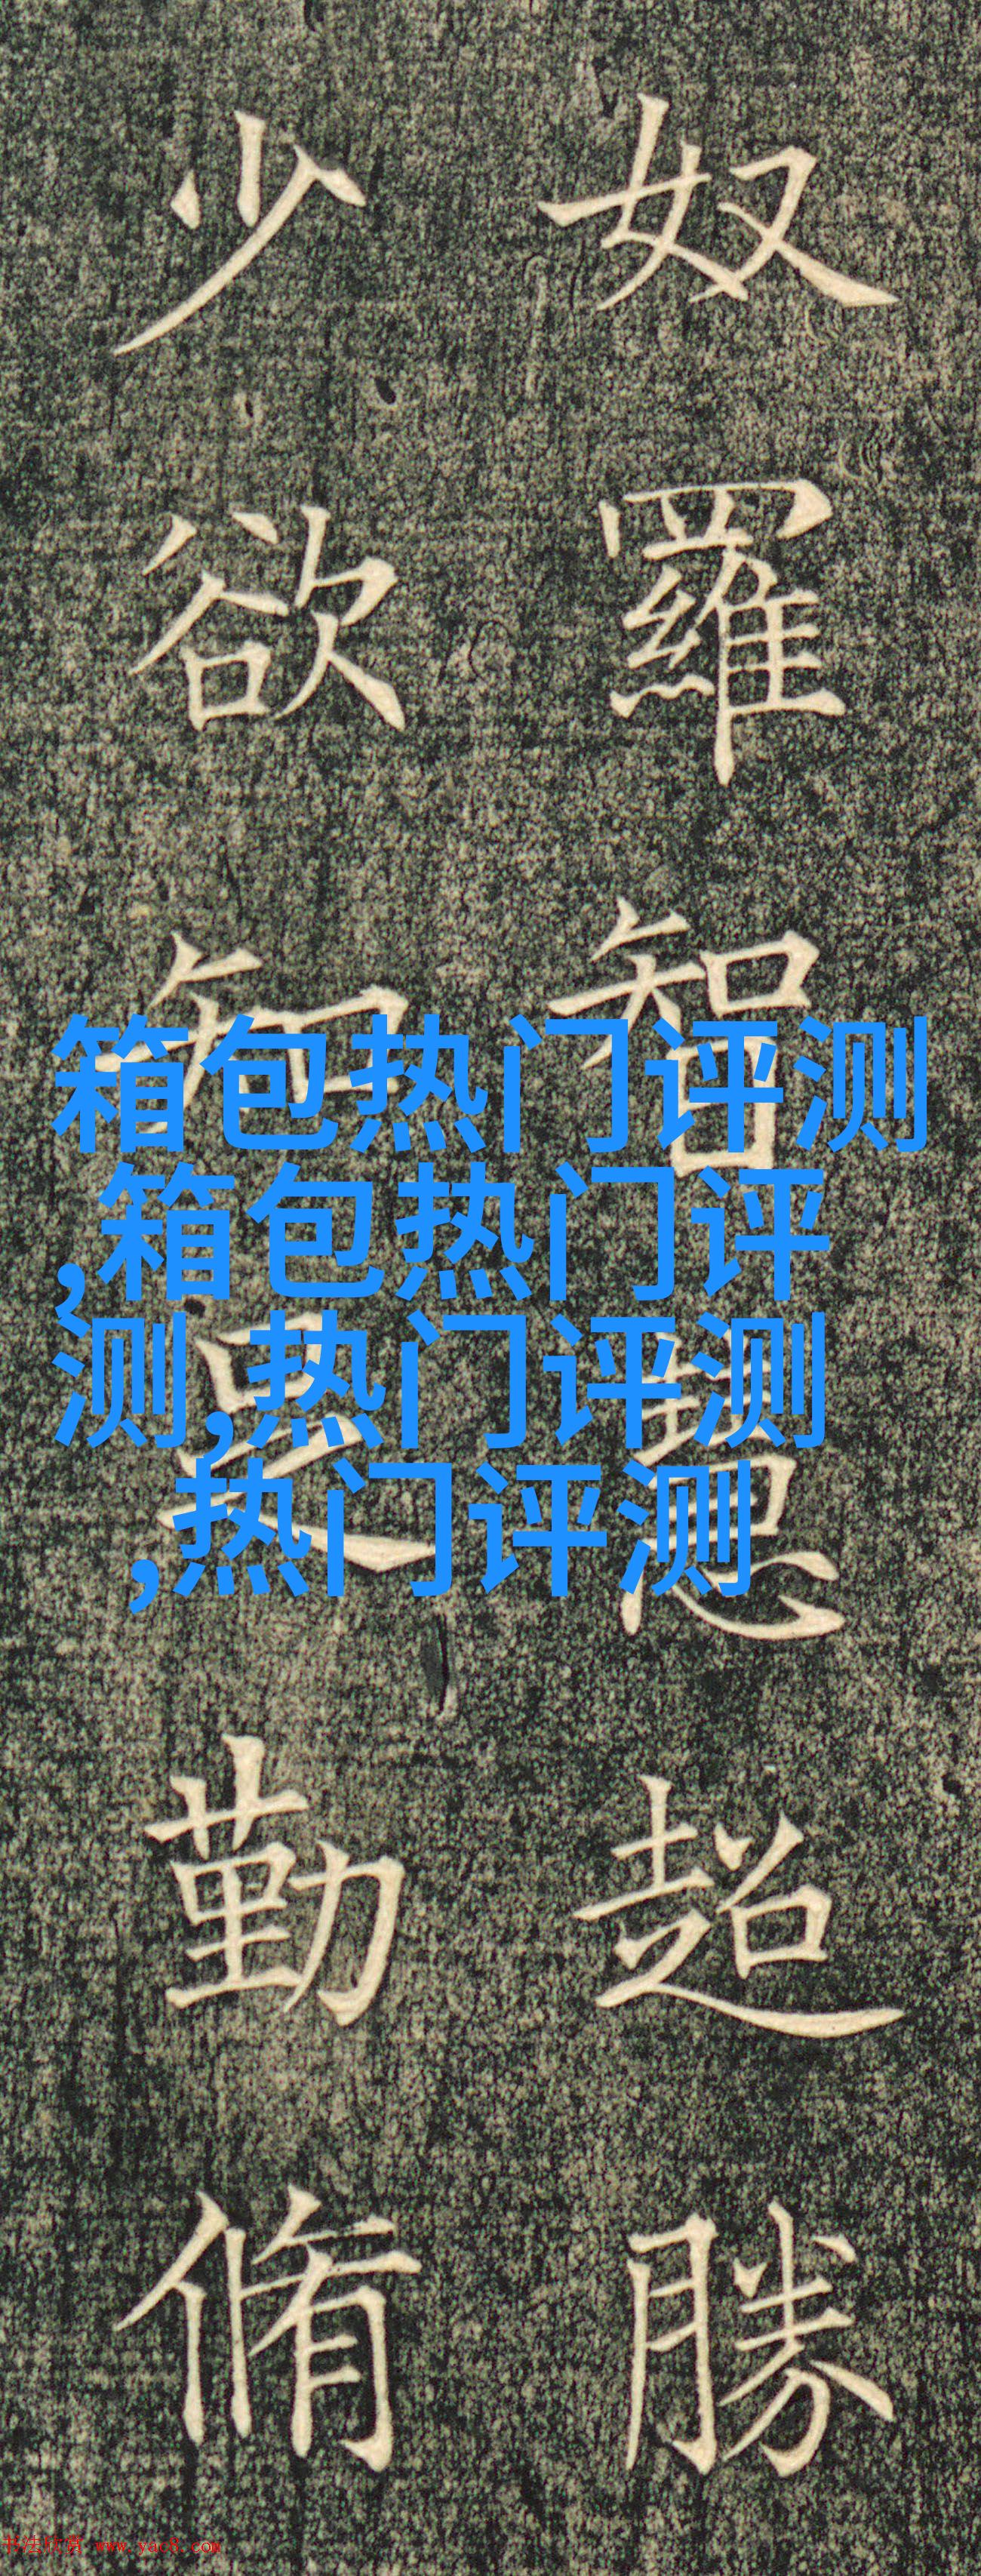 奴羅智慧超勝
少欲知足勤脩
箱包热门评测
,箱包热门评
测,热门评测
,热门评测
书法欣赏 www.yac8.com